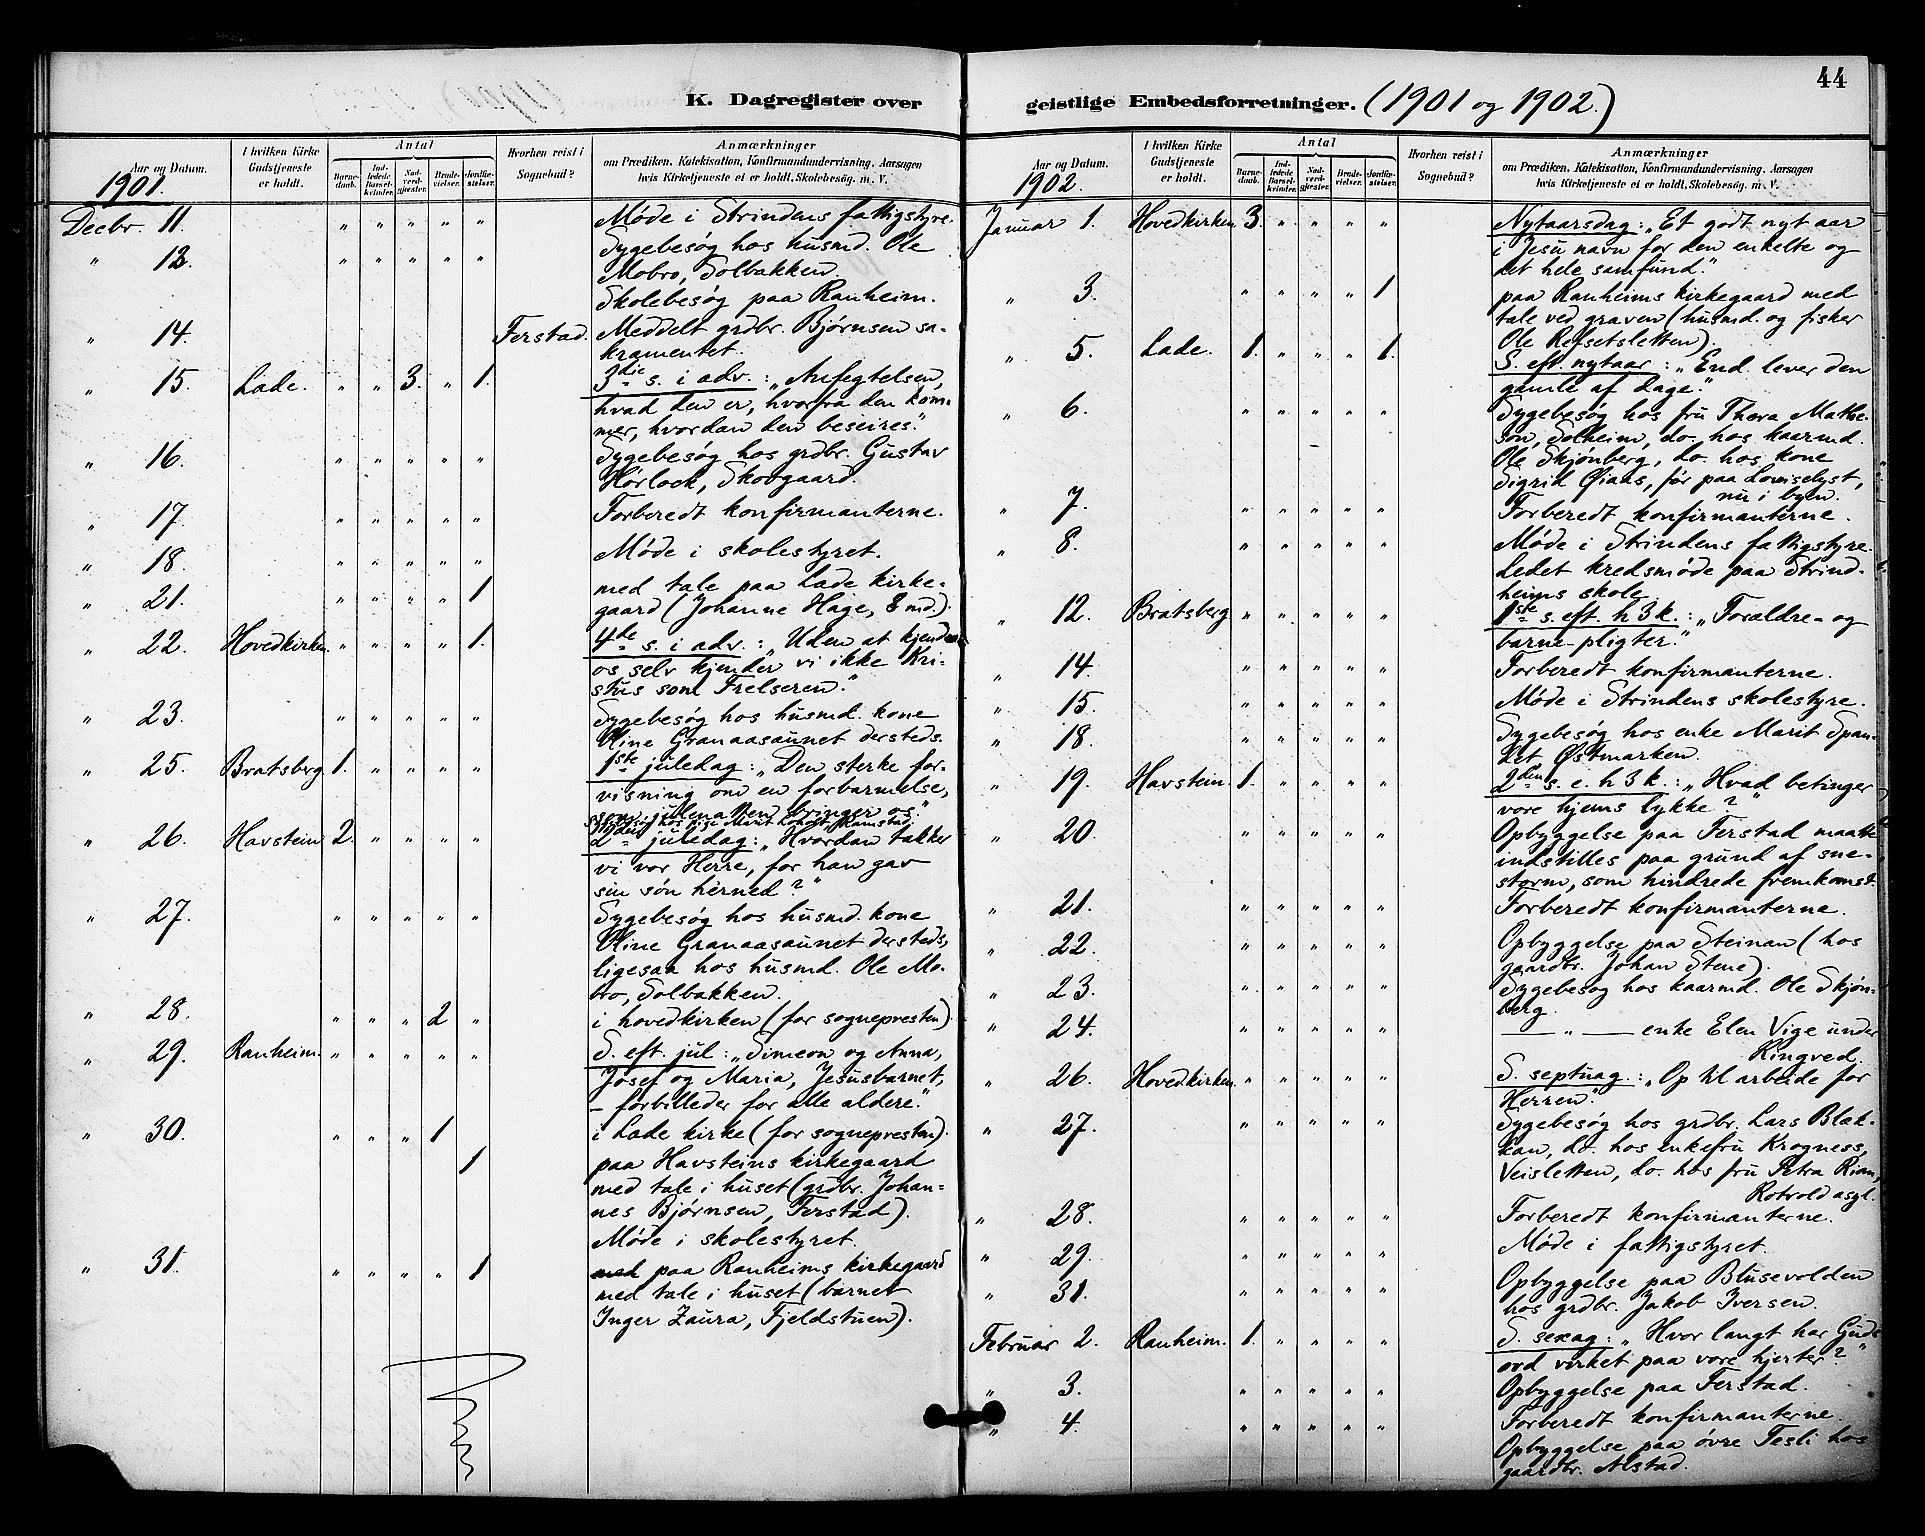 44
K. Dagregister over geistlige Embedsforretninger. (1901 og 1902.)
Aar og Datum.
I hvilken Kirke Gudstjeneste er holdt.
Antal
Barnedaab.
Indledede Barselkvinder.
Nadverdgjester.
Brudevielser.
Jordfæstelser.
Hvorhen reist i Sognebud?
Anmærkninger
om Prædiken, Katekisation, Konfirmandundervisning, Aarsagen
hvis Kirketjeneste ei er holdt, Skolebesøg. m. V.
1901.
Decbr. 11. " " " " " Møde i Strindens fattigstyre.
" 12. " " " " " Sygebesøg hos husmd. Ole
Mobro, Solbakken.
Skolebesøg paa Ranheim.
" 14. Ferstad. Meddelt grdbr. Bjørnsen sa-
kramentet.
" 15. Lade. " " 3. " 1. 3die s. i adv.: "Anfegtelsen,
hvad den er, hvorfra den kom-
mer, hvordan den beseires."
" 16. " " " " " Sygebesøg hos grdbr. Gustav
Horloek, Skovgaard.
" 17. " " " " " Forberedt konfirmanterne.
" 18. " " " " " Møde i skolestyret.
" 21. " " " " 1 med tale paa Lade kirke-
gaard (Johanne Hage, 8 md.).
" 22. Hovedkirken. " " " " 1. 4de s. i adv.: "Uden at kjende
os selv kjender vi ikke Kri-
stus som Frelseren."
" 23. " " " " " Sygebesøg hos husmd. kone
Oline Granaasaunet dersteds.
" 25. Bratsberg. 1. " " " " 1ste juledag: "Den sterke for-
visning om en forbarmelse,
som julenatten bringer os."
Sygebesøg hos pige Marit
" 26. Havstein 2. " " " " 2den juledag: "Hvordan takker
vi vor Herre, for han gav
sin søn herned?"
" 27. " " " " " Sygebesøg hos husmd. kone
Oline Granaasaunet dersteds,
ligesaa hos husmd. Ole Mo-
bro, Solbakken.
" 28. " " " 2 " i hovedkirken (for sognepresten).
" 29. Ranheim. " " " " " S. eft. jul: "Simeon og Anna,
Josef og Maria, Jesusbarnet,
– forbilleder for alle aldere."
" 30. " " " 1 i Lade kirke (for sognepresten).
1 paa Havsteins kirkegaard
med tale i huset (grdbr. Johan-
nes Bjørnsen, Ferstad).
Møde i skolestyret.
" 31. " " " " 1 med paa Ranheims kirkegaard
med tale i huset (barnet
Inger Laura, Fjeldstuen).
Aar og Datum.
I hvilken Kirke Gudstjeneste er holdt.
Antal
Barnedaab.
Indledede Barselkvinder.
Nadverdgjester.
Brudevielser.
Jordfæstelser.
Hvorhen reist i Sognebud?
Anmærkninger
om Prædiken, Katekisation, Konfirmandundervisning, Aarsagen
hvis Kirketjeneste ei er holdt, Skolebesøg. m. V.
1902.
Januar 1. Hovedkirken 3. " " " " Nytaarsdag: "Et godt nyt aar
i Jesu navn for den enkelte og
det hele samfund."
" 3. " " " " 1 paa Ranheims kirkegaard med
tale ved graven (husmd. og fisker
Ole Refsetsletten).
" 5. Lade. 1. " " " 1. S. eft. nytaar: "End lever den
gamle af dage."
" 6. " " " " " Sygebesøg hos fru Thora Mathe-
son, Solheim, do. hos kaarmd.
Ole Skjønberg, do. hos kone
Sigrid Øiaas, før paa Louiselyst,
nu i byen.
" 7. " " " " " Forberedt konfirmanterne.
" 8. " " " " " Møde i Strindens fattigstyre.
Ledet kredsmøde paa Strind-
heims skole.
" 12. Bratsberg " " " " " 1ste s. eft. h 3 k.: "Forældre- og
barne-pligter."
" 14. " " " " " Forberedt konfirmanterne.
" 15. " " " " " Møde i Strindens skolestyre.
" 18. " " " " " Sygebesøg hos enke Marit Span-
det Østmarken.
" 19. Havstein. 1. " " " " 2den s. e. h 3 k.: "Hvad betinger
vore hjems lykke?"
" 20. " " " " " Opbyggelse paa Ferstad maatte
indstilles paa grund af sne-
storm, som hindrede fremkomst.
" 21. " " " " " Forberedt konfirmanterne.
" 22. " " " " " Opbyggelse paa Steinan (hos
gaardbr. Johan Stene).
" 23. " " " " " Sygebesøg hos kaarmd. Ole Skjøn-
berg.
" 24. " " " " " — " — enke Elen Vige under
Ringved.
" 26. Hovedkirken. " " " " " S. septuag.: "Op til arbeide for
Herren."
" 27. " " " " " Sygebesøg hos grdbr. Lars Blæk-
kan, do. hos enkefru Krogness,
Veisletten, do. hos fru Petra Rian,
Rotvold asyl.
" 28. " " " " " Forberedt konfirmanterne.
" 29. " " " " " Møde i fattigstyret.
" 31. " " " " " Opbyggelse paa Blusevolden
hos grdbr. Jakob Iversen.
Februar 2. Ranheim. 1. " " " " S. sexag: "Hvor langt har Guds
ord virket paa vore hjerter?"
" 3. " " " " " Opbyggelse paa Ferstad.
" 4. " " " " " Forberedt konfirmanterne.
Opbyggelse paa øvre Fesli hos
gaardbr. Alstad.